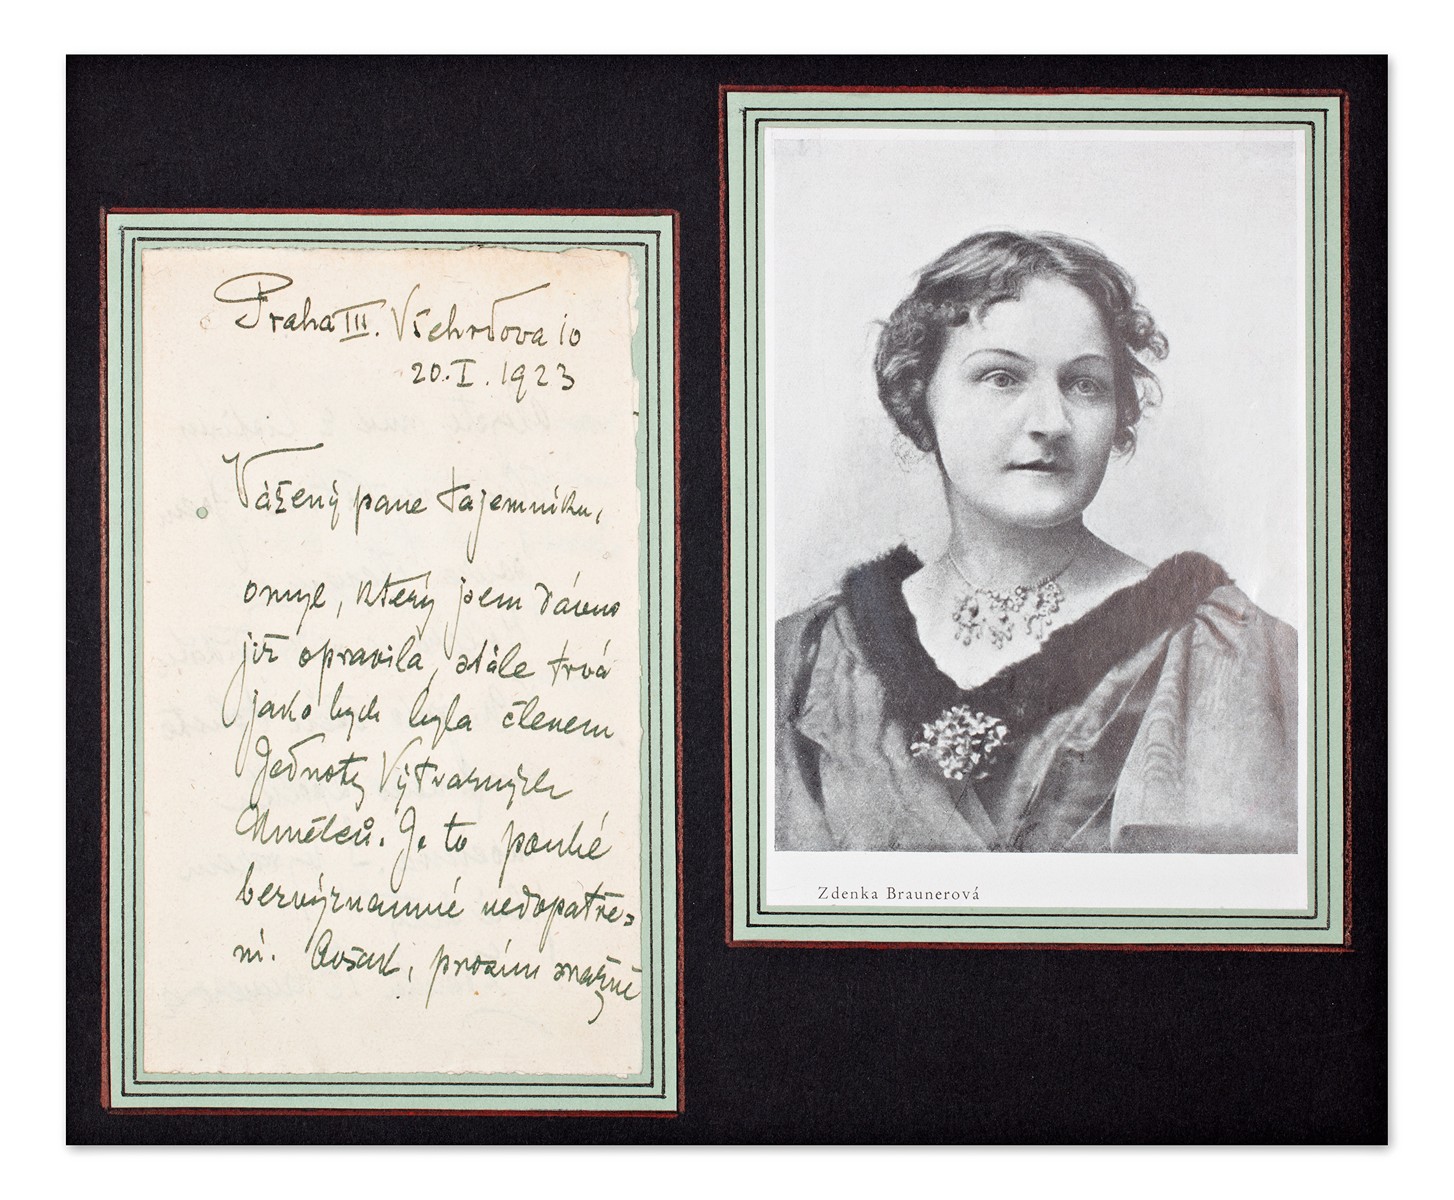 Praha III. Všehrdova 10
20.I.1923
Vážený pane tajemníku,
omyl, který jsem dávno
již opravila, stále trvá
jako bych byla členem
Jednoty Výtvarných
Umělců. Je to pouhé
bezvýznamné nedopatře=
ní. Avšak, prosím snažně
Zdenka Braunerová